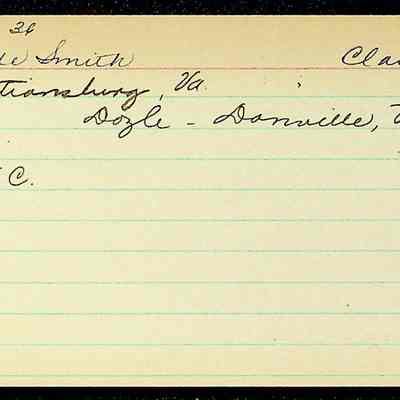 36
de Smith Cla
tiansburg, Va.
Dozle - Danville,
C.